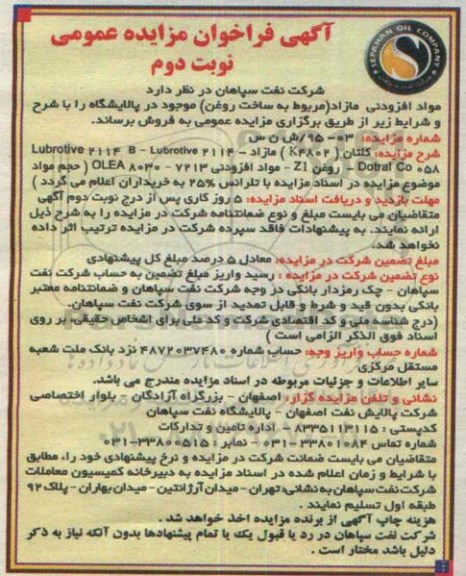 آگهی فراخوان مزایده عمومی
نوبت دوم
SEPAHAN OIL COMPANY
شرکت نفت سپاهان در نظر دارد
مواد افزودنی مازاد(مربوط به ساخت روغن) موجود در پالایشگاه را با شرح
و شرایط زیر از طریق برگزاری مزایده عمومی به فروش برساند.
شماره مزایده: ۰۳-۹۵/ش ن س
شرح مزایده: کلتان ( K۴۸۰۲ ) مازاد – Lubrotive ۲۱۱۴ B – Lubrotive ۲۱۱۴
Dotral Co ۰۵۸ – روغن Z۱ – مواد افزودنی ۷۲۱۳ – OLEA ۸۰۳۰ ( حجم مواد
موضوع مزایده در اسناد مزایده با تلرانس ۲۵% به خریداران اعلام می گردد )
مهلت بازدید و دریافت اسناد مزایده: ۵ روز کاری پس از درج نوبت دوم آگهی
متقاضیان می بایست مبلغ و نوع ضمانتنامه شرکت در مزایده را به شرح ذیل
ارائه نمایند. به پیشنهادات فاقد سپرده شرکت در مزایده ترتیب اثر داده
نخواهد شد.
مبلغ تضمین شرکت در مزایده: معادل ۵ درصد مبلغ کل پیشنهادی
نوع تضمین شرکت در مزایده : رسید واریز مبلغ تضمین به حساب شرکت نفت
سپاهان – چک رمزدار بانکی در وجه شرکت نفت سپاهان و ضمانتنامه معتبر
بانکی بدون قید و شرط و قابل تمدید از سوی شرکت نفت سپاهان.
(درج شناسه ملی و کد اقتصادی شرکت و کد ملی برای اشخاص حقیقی، بر روی
اسناد فوق الذکر الزامی است )
شماره حساب واریز وجه: حساب شماره ۴۸۷۲۰۳۷۴۸۰ نزد بانک ملت شعبه
مستقل مرکزی
سایر اطلاعات و جزئیات مربوطه در اسناد مزایده مندرج می باشد.
نشانی و تلفن مزایده گزار: اصفهان – بزرگراه آزادگان – بلوار اختصاصی
شرکت پالایش نفت اصفهان – پالایشگاه نفت سپاهان
کدپستی : ۸۳۳۵۱۱۳۱۱۵ – اداره تامین و تدارکات
شماره تماس ۳۳۸۰۱۰۸۴-۰۳۱ – نمابر : ۳۳۸۰۰۵۱۵-۰۳۱
متقاضیان می بایست ضمانت شرکت در مزایده و نرخ پیشنهادی خود را، مطابق
با شرایط و زمان اعلام شده در اسناد مزایده به دبیرخانه کمیسیون معاملات
شرکت نفت سپاهان به نشانی: تهران – میدان آرژانتین – میدان بهاران – پلاک ۹۲
طبقه اول تسلیم نمایند .
هزینه چاپ آگهی از برنده مزایده اخذ خواهد شد .
شرکت نفت سپاهان در رد یا قبول یک یا تمام پیشنهادها بدون آنکه نیاز به ذکر
دلیل باشد مختار است .